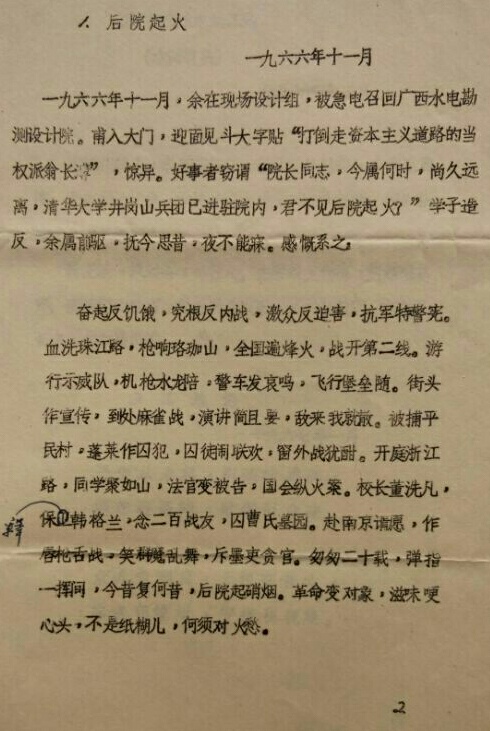 1. 后院起火
一九六六年十一月
一九六六年十一月，余在现场设计组，被急电召回广西水电勘
测设计院。甫入大门，迎面见斗大字贴“打倒走资本主义道路的当
权派翁长溥”，惊异。好事者窃谓“院长同志，今属何时，尚久远
离，清华大学井岗山兵团已进驻院内，君不见后院起火？”学子造
反，余属前驱，抚今思昔，夜不能寐。感慨系之：
奋起反饥饿，究根反内战，激众反迫害，抗军特警宪。
血洗珠江路，枪响珞珈山，全国遍烽火，战开第二线。游
行示威队，机枪水龙陪，警车发哀鸣，飞行堡垒随。街头
作宣传，到处麻雀战，演讲简且要，敌来我就散。被捕平
民村，蓬莱作囚犯，囚徒闹联欢，窗外战犹酣。开庭浙江
路，同学聚如山，法官变被告，国会纵火案。校长董洗凡，
保释韩格兰，念二百战友，囚曹氏墓园。赴南京请愿，作
唇枪舌战，笑群魔乱舞，斥墨吏贪官。匆匆二十载，弹指
一挥间，今昔复何昔，后院起硝烟。革命变对象，滋味哽
心头，不是纸糊儿，何须对火愁。
2